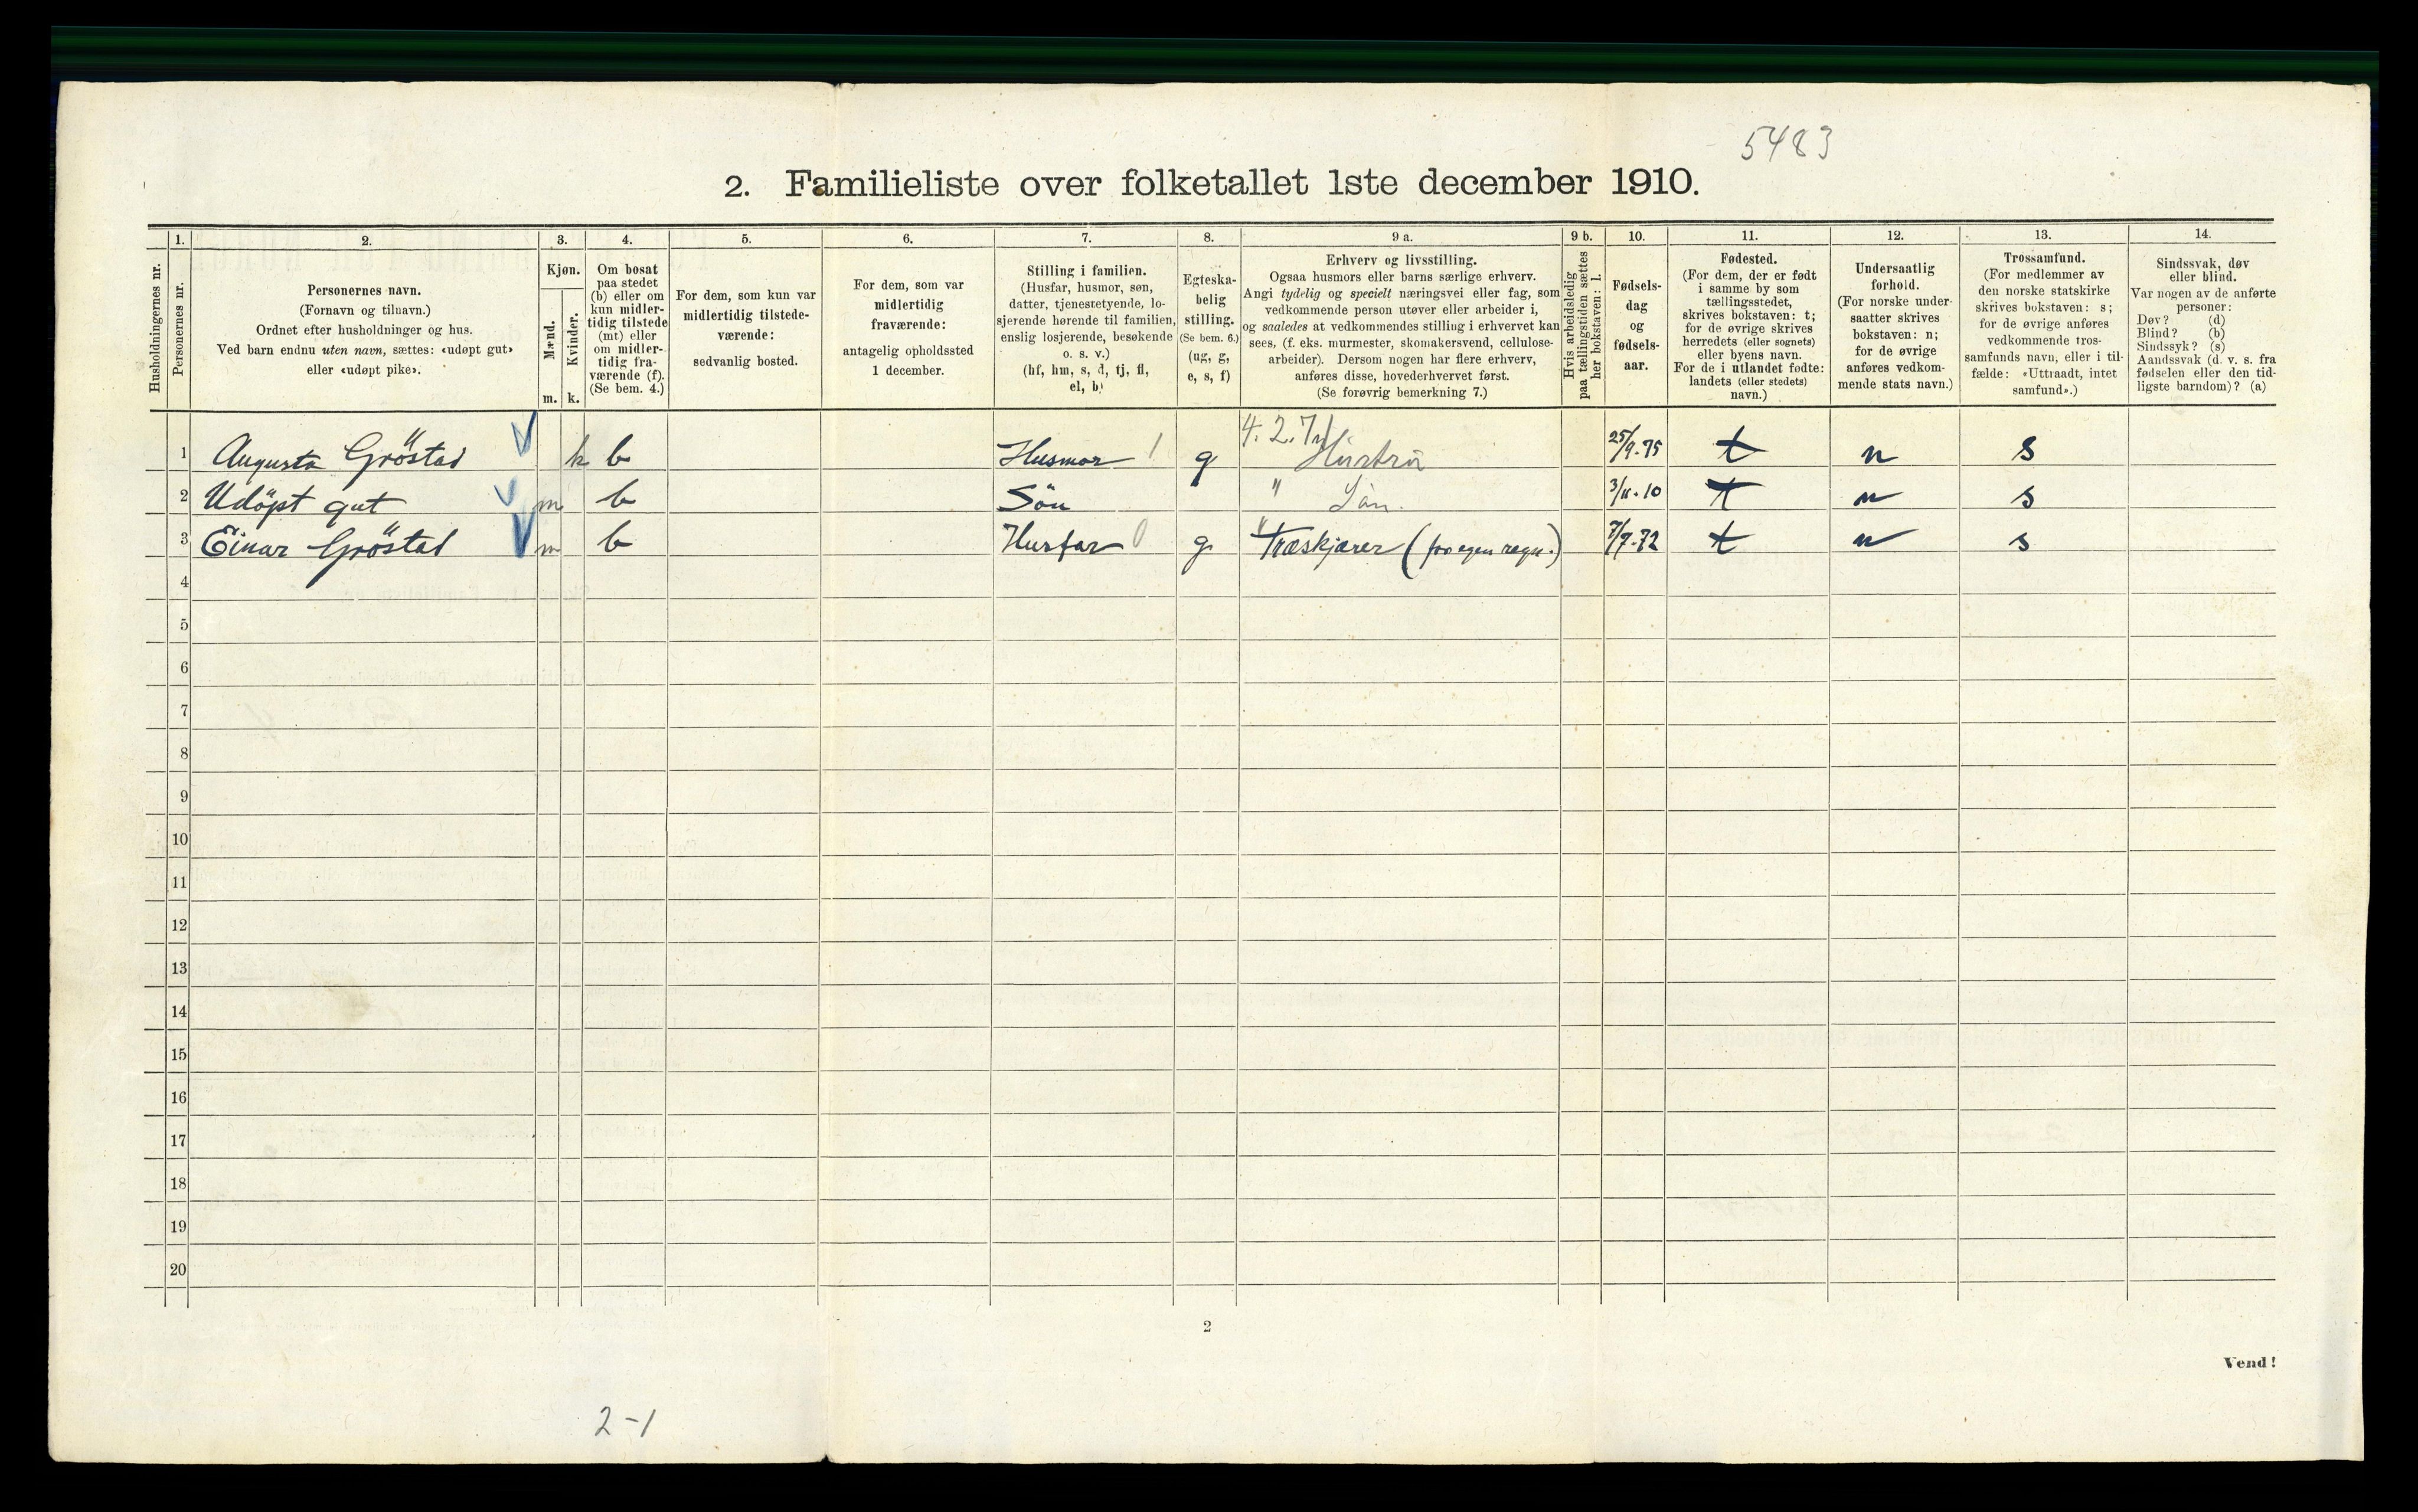 5483
2. Familieliste over folketallet 1ste december 1910.
Husholdningernes nr.
1.
Personernes nr.
2.
Personernes navn.
(Fornavn og tilnavn.)
Ordnet efter husholdninger og hus.
Ved barn endnu uten navn, sættes: «udøpt gut»
eller «udøpt pike».
3.
Kjøn.
Mænd.
Kvinder.
m. k.
4.
Om bosat
paa stedet
(b) eller om
kun midler-
tidig tilstede
(mt) eller
om midler-
tidig fra-
værende (f).
(Se bem. 4.)
5.
For dem, som kun var
midlertidig tilstede-
værende:
sedvanlig bosted.
6.
For dem, som var
midlertidig
fraværende:
antagelig opholdssted
1 december.
7.
Stilling i familien.
(Husfar, husmor, søn,
datter, tjenestetyende, lo-
sjerende hørende til familien,
enslig losjerende, besøkende
o. s. v.)
(hf, hm, s, d, tj, fl,
el, b)
8.
Egteska-
belig
stilling.
(Se bem. 6.)
(ug, g,
e, s, f)
9 a.
Erhverv og livsstilling.
Ogsaa husmors eller barns særlige erhverv.
Angi tydelig og specielt næringsvei eller fag, som
vedkommende person utøver eller arbeider i,
og saaledes at vedkommendes stilling i erhvervet kan
sees, (f. eks. murmester, skomakersvend, cellulose-
arbeider). Dersom nogen har flere erhverv,
anføres disse, hovederhvervet først.
(Se forøvrig bemerkning 7.)
9 b.
Hvis arbeidsledig
paa tællingstiden sættes
her bokstaven: l.
10.
Fødsels-
dag
og
fødsels-
aar.
11.
Fødested.
(For dem, der er født
i samme by som
tællingsstedet,
skrives bokstaven: t;
for de øvrige skrives
herredets (eller sognets)
eller byens navn.
For de i utlandet fødte:
landets (eller stedets)
navn.)
12.
Undersaatlig
forhold.
(For norske under-
saatter skrives
bokstaven: n;
for de øvrige
anføres vedkom-
mende stats navn.)
13.
Trossamfund.
(For medlemmer av
den norske statskirke
skrives bokstaven: s;
for de øvrige anføres
vedkommende tros-
samfunds navn, eller i til-
fælde: «Uttraadt, intet
samfund».)
14.
Sindssvak, døv
eller blind.
Var nogen av de anførte
personer:
Døv? (d)
Blind? (b)
Sindssyk? (s)
Aandssvak (d. v. s. fra
fødselen eller den tid-
ligste barndom)? (a)
4. 2. 7
1 Augusta Gröstad k b Husmor 1 g Hustru 25/9-75 t n s
2 Udöpt gut m b Sön " Sön. 3/11-10 t n s
3 Einar Gröstad m b Husfar 0 g " Træskjærer (for egen regn.) 7/7-72 t n s
4
5
6
7
8
9
10
11
12
13
14
15
16
17
18
19
20
2
Vend!
2-1